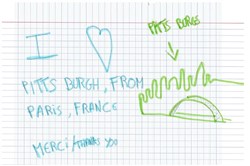 I
PITTS BURGH, FROM
PARIS, FRANCE
MERCi/THANKS YOU
PITTS BURGS